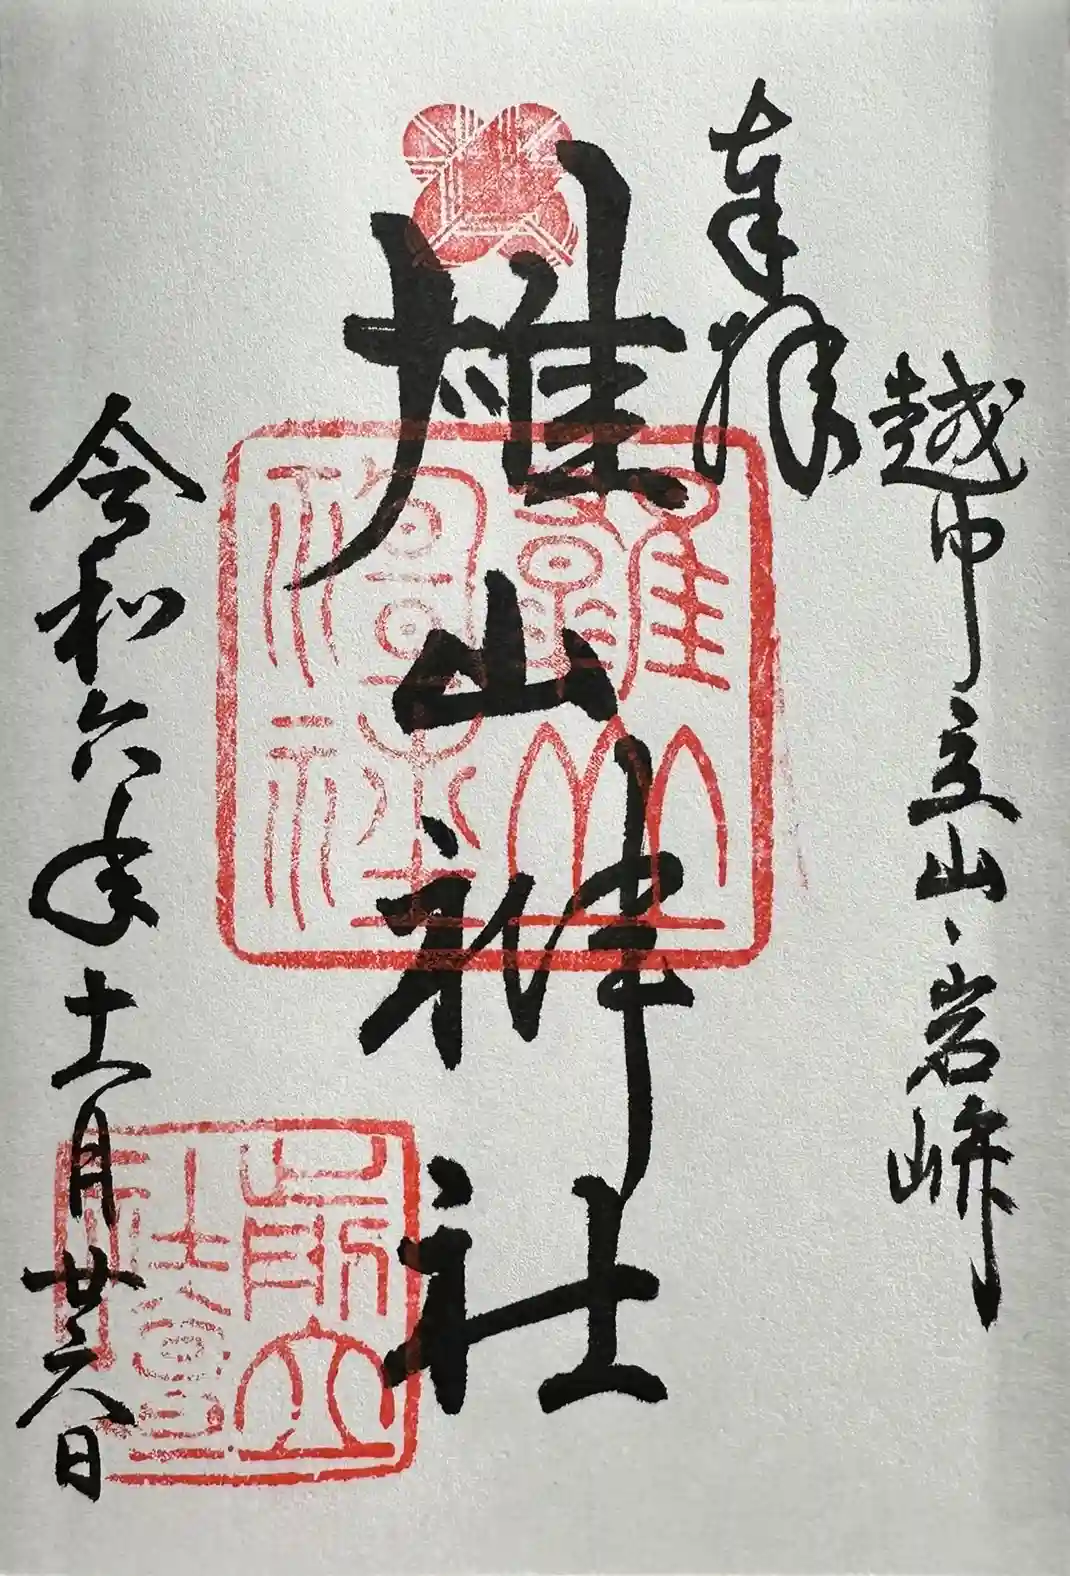 越中立山・岩峅
奉拝
雄山神社
雄山神社
前立社壇
令和六年十一月廿六日